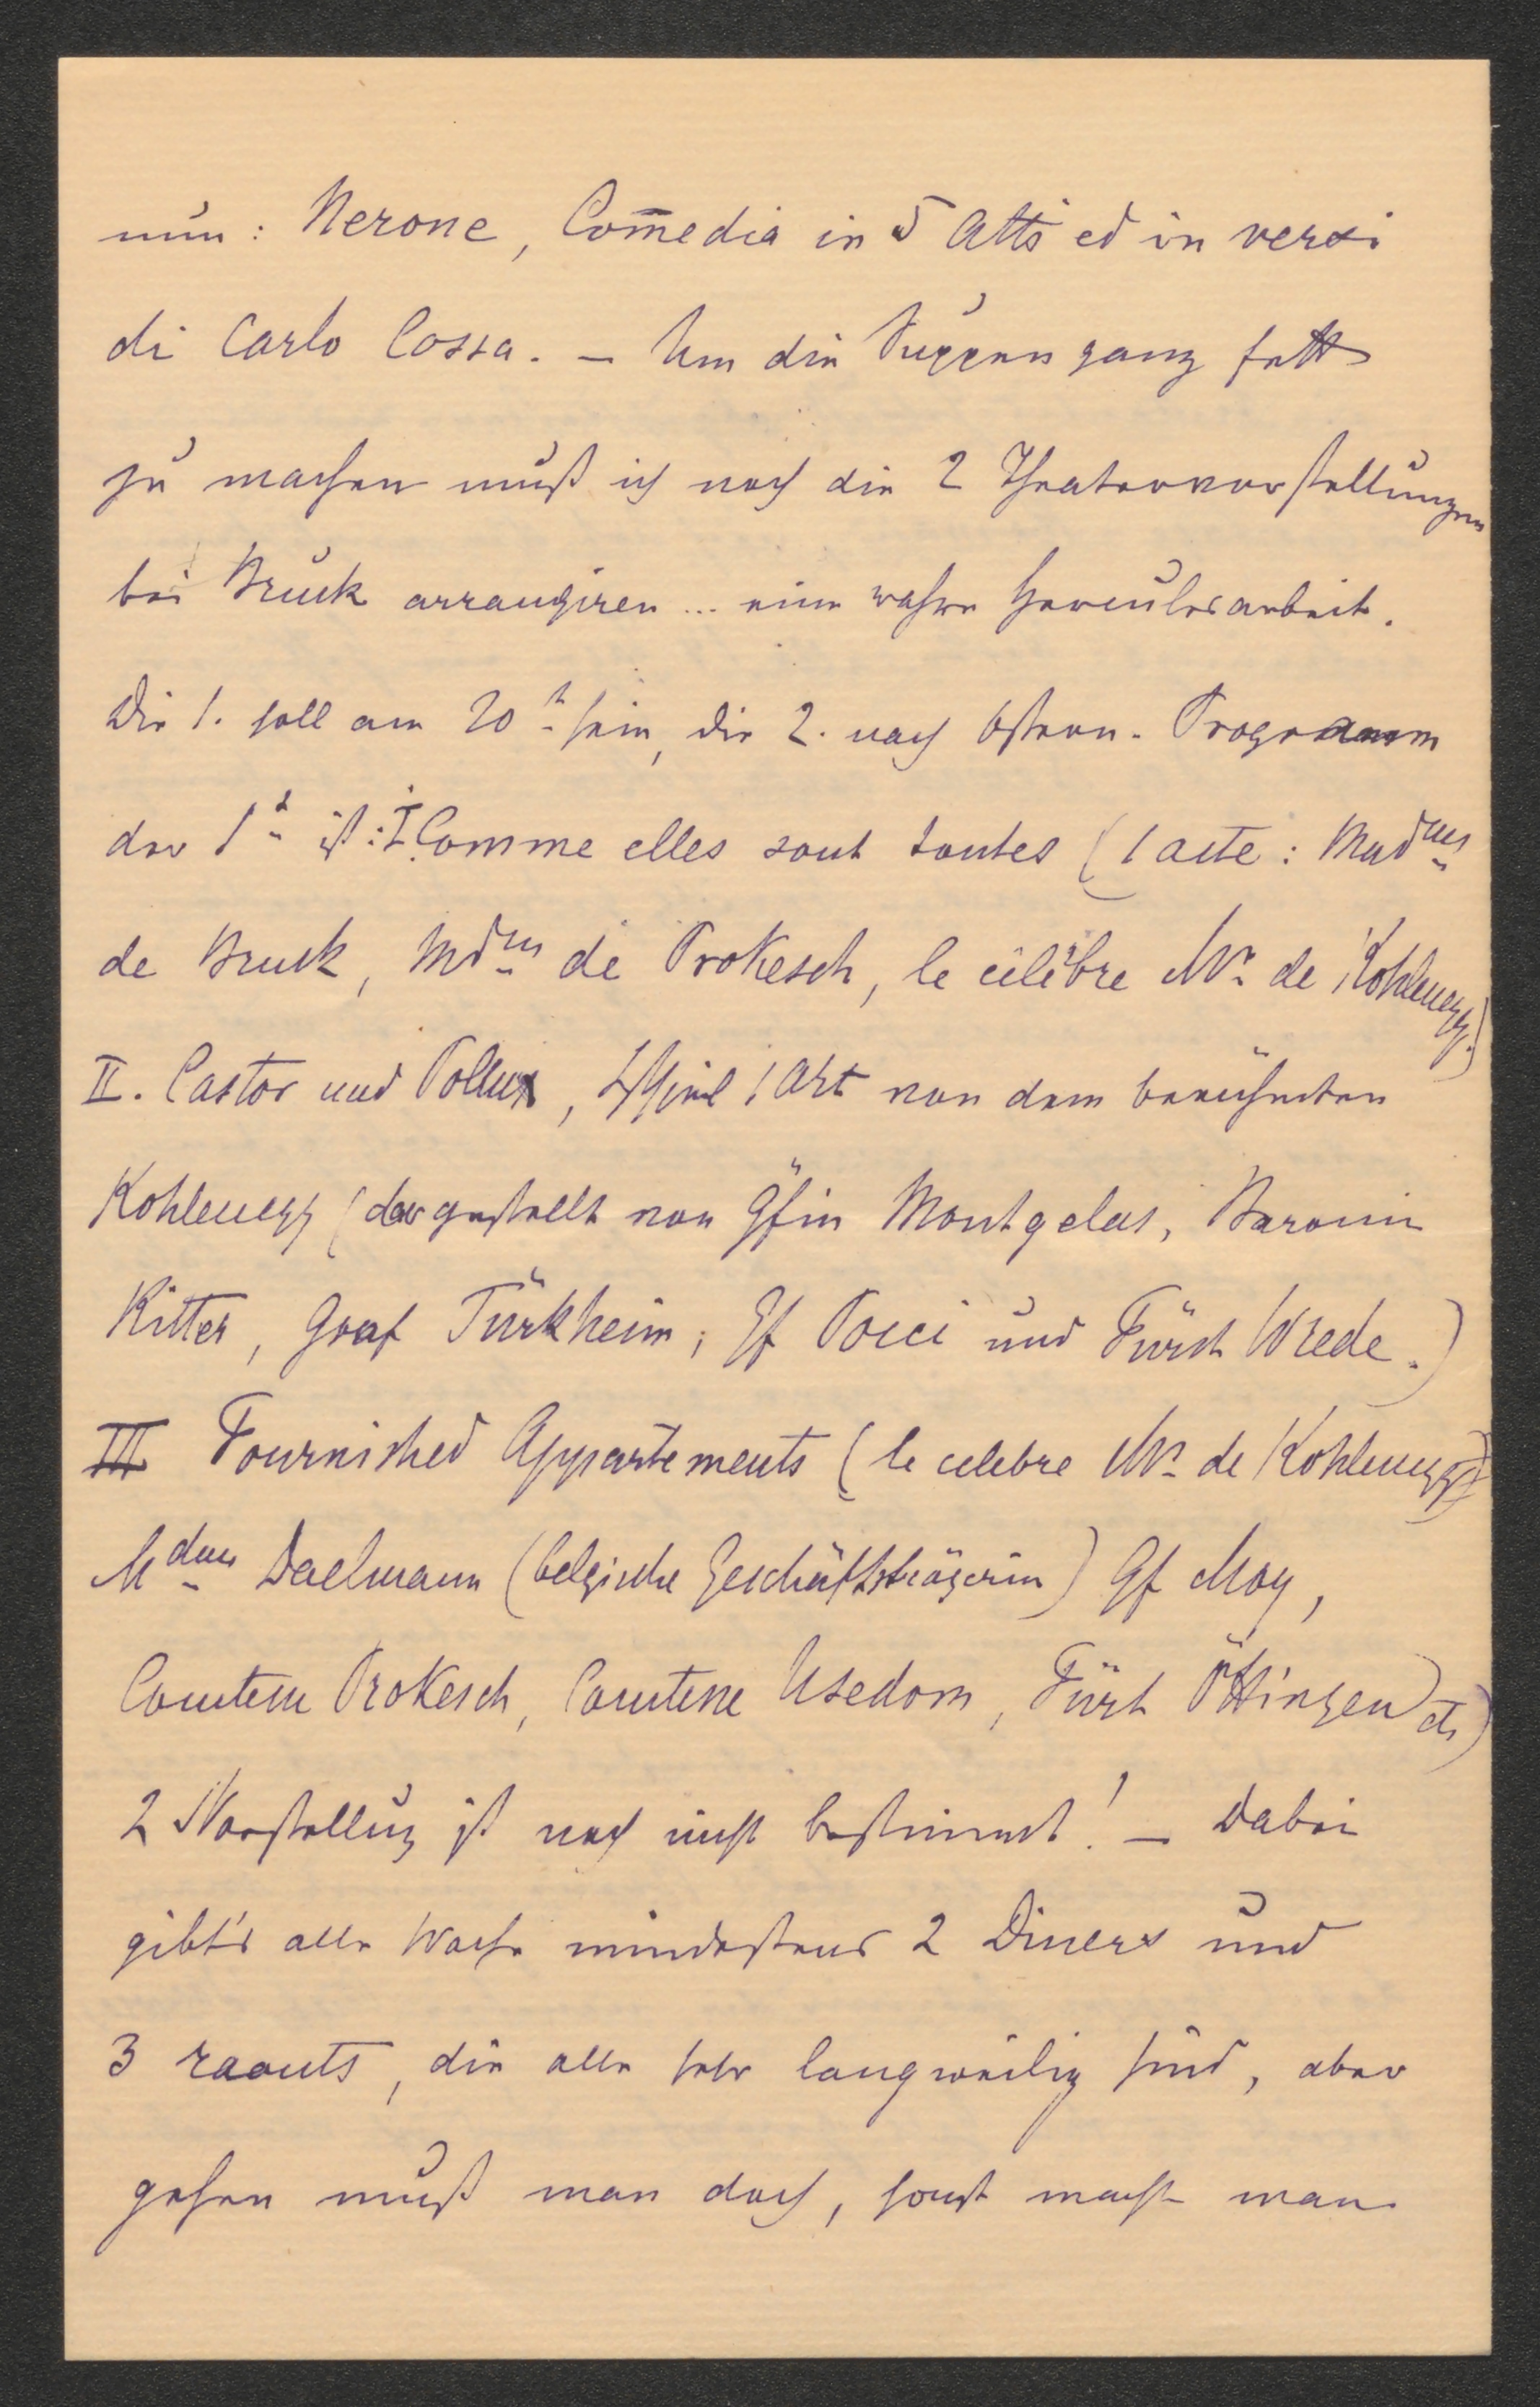 nun: Nerone, Com̅edia in 5 Atti ed in versi
di Carlo Cossa. – Um die Suppen ganz fett
zu machen muß ich noch die 2 Theatervorstellungen
bei Bruck arrangiren ... eine wahre Herculesarbeit.
Die 1. soll am 20t sein, die 2. nach Ostern. Programm
der 1t ist: I. Comme elles sont toutes (1 acte: Madme
de Bruck, Mdme de Prokesch, le célèbre Mr de Kohlenegg.)
II. Castor und Pollux, 1 Akt von dem berühmten
Kohlenegg (dargestellt von Gfin Montgelas, Baronin
Ritter, Graf Türkheim, Gf Pocci und Fürst Wrede.)
III Fournished Appartements (le celebre Mr de Kohlenegg)
Mdme Daelmann (belgische Geschäftsträgerin) Gf Moy,
Comtesse Prokesch, Comtesse Usedom, Fürst Öttingen etc)
2 Vorstellung ist noch nicht bestimmt! – Dabei
gibt's alle Woche mindestens 2 Diners und
3 raouts, die alle sehr langweilig sind, aber
gehen muß man doch, sonst macht man